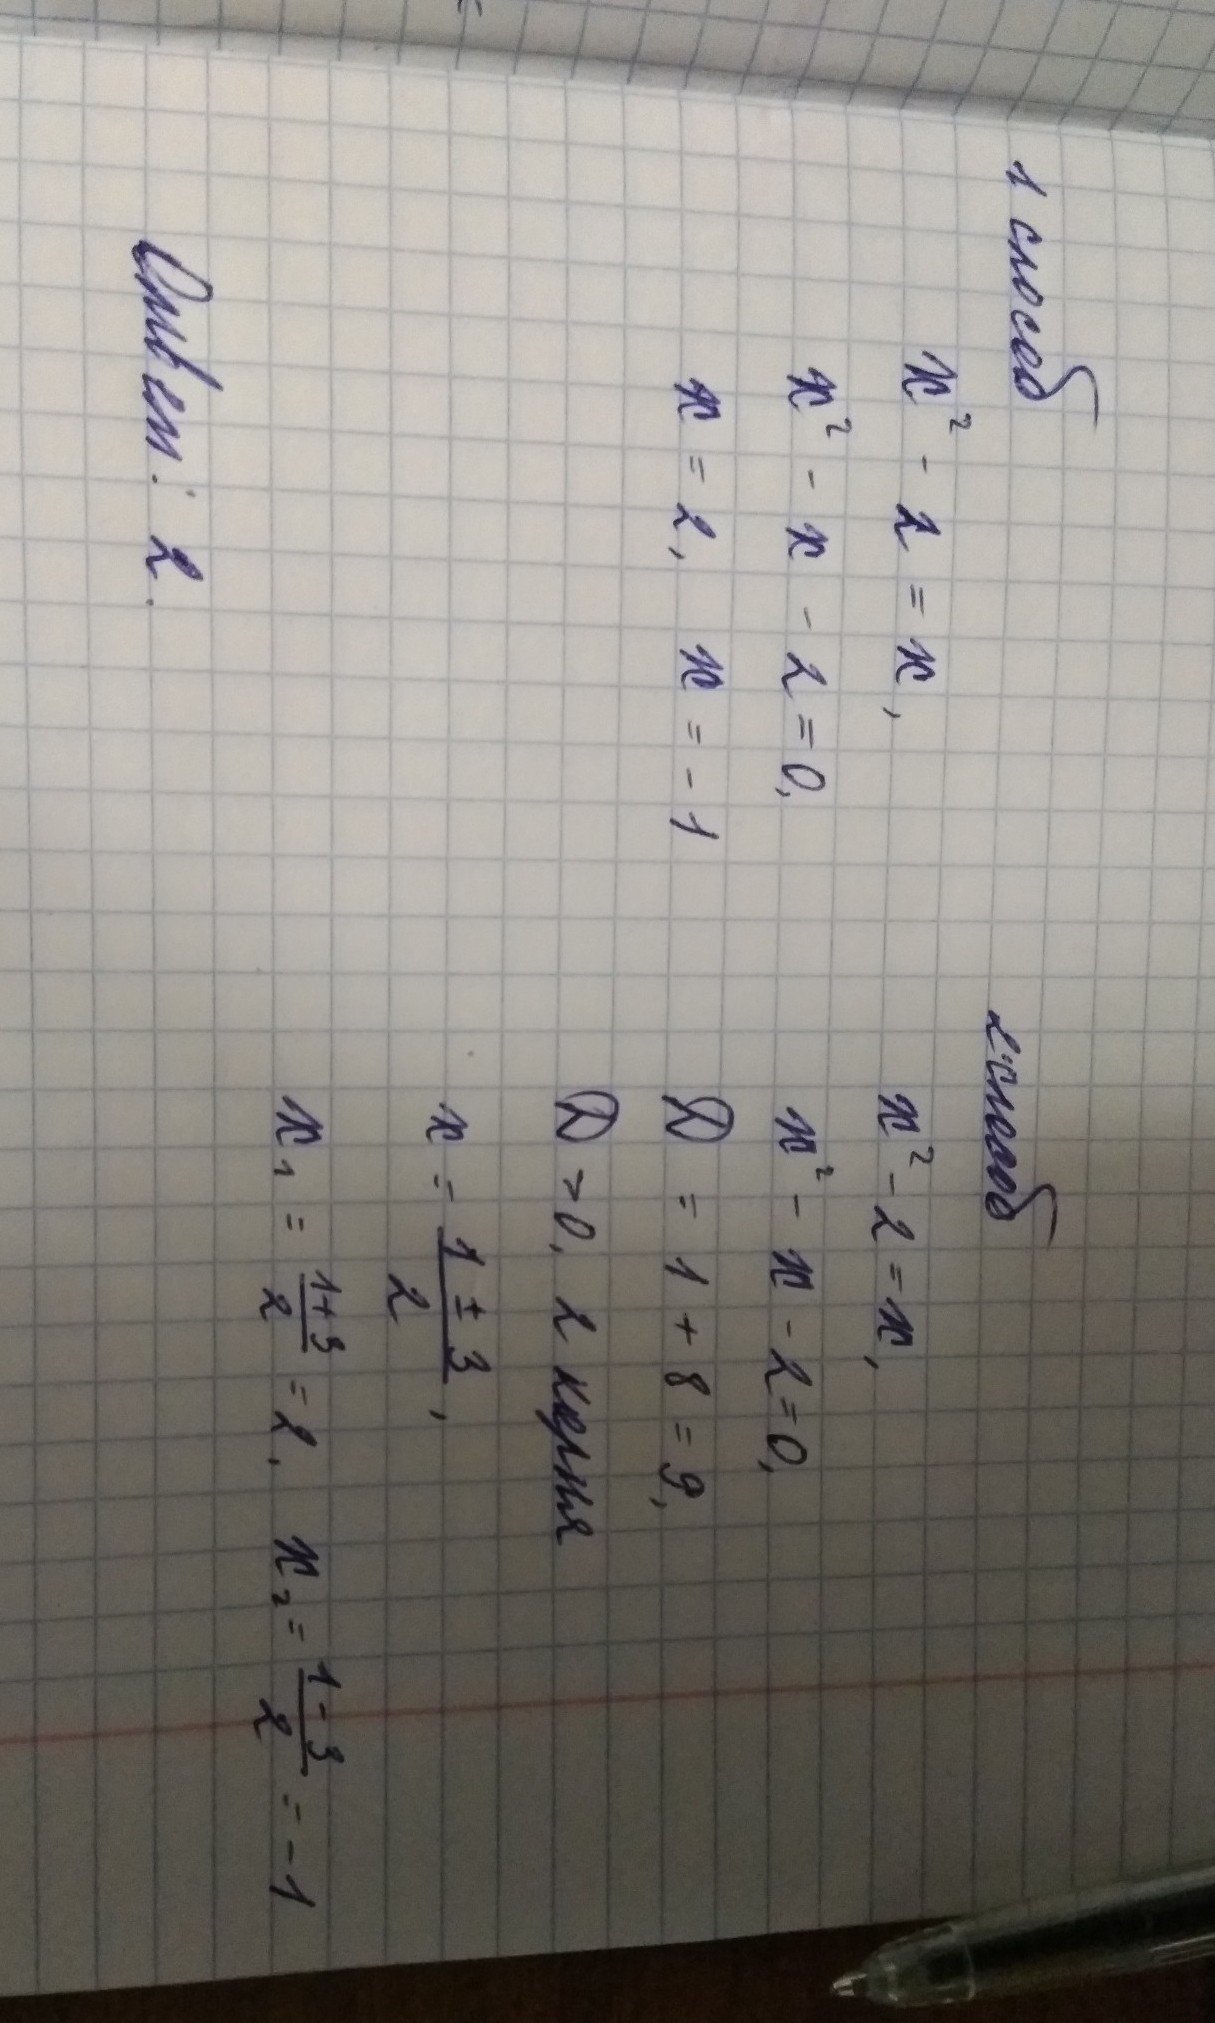 1 способ
x² - 2 = x,
x² - x - 2 = 0,
x = 2, x = - 1
2 способ
x² - 2 = x,
x² - x - 2 = 0,
D = 1 + 8 = 9,
D > 0, 2 корня
x = (1 ± 3)/2,
x₁ = (1+3)/2 = 2, x₂ = (1-3)/2 = -1
Ответ: 2.